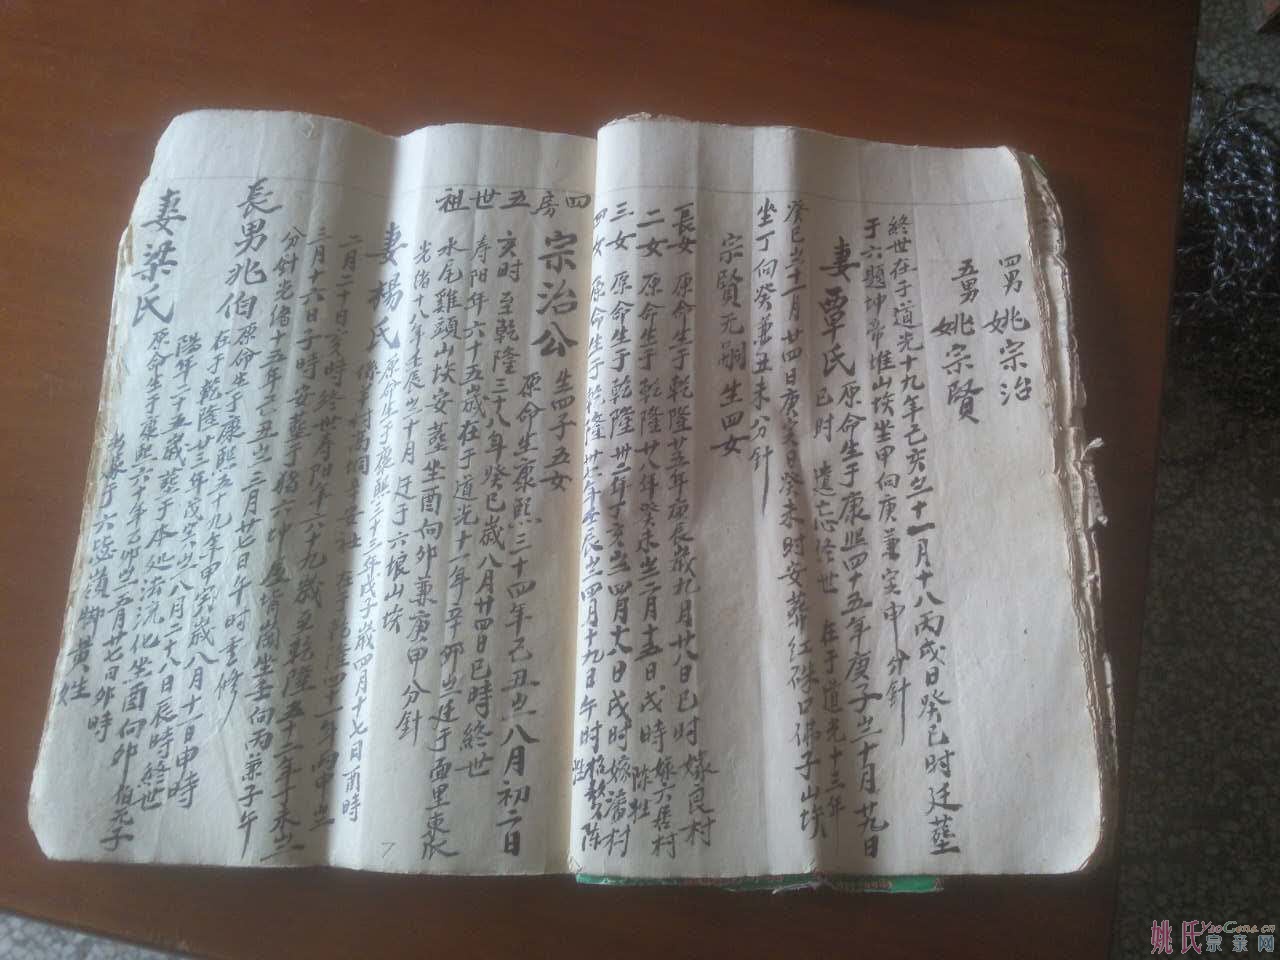 四男 姚宗治
五男 姚宗賢
終世在于道光十九年己亥之十一月十八丙戌日癸巳时廷塟
于六題坤帝堆山坎坐甲向庚兼寅申分針
妻覃氏 原命生于康熙四十五年庚子之十月廿九日
巳时 遺忘終世 在于道光十三年
癸巳之十一月廿四日庚寅日癸未时安葬红硃口佛子山坎
坐丁向癸兼丑未分針
宗賢无嗣生四女
長女 原命生于乾隆廿五年庚辰歲九月廿八日巳时嫁良村
二女 原命生于乾隆廿八年癸未之二月十五日戌時嫁六隻村
三女 原命生于乾隆卅二年丁亥之四月十八日戌时嫁潘村 陈姓
四女 原命生于乾隆卅七年壬辰之四月十九日午时
四房五世祖
宗治公 生四子五女
原命生康熙三十四年己丑之八月初二日
亥时 至乾隆三十八年癸巳歲八月廿四日巳時終世
寿阳年六十五歲在于道光十一年辛卯之廷于面里東
水尾雞頭山坎安塟坐酉向卯兼庚甲分針
光緒十八年壬辰之十月廷于六娘山坎
妻楊氏 原命生于康熙三十三年戊子歲四月十七日酉時
在于乾隆四十一年丙申之
二月二十日亥時終世寿阳年六十九歲至乾隆五十二年丁未之二
三月十六日子時安塟于 坐壬向丙兼子午
分針光緒十五年己丑之三月廿七日午时重修
長男兆伯 原命生于康熙五十九年甲寅歲八月十一日申時
在于乾隆廿三年戊寅之八月二十八日辰時終世
阳年二十五歲塟于本处法流化坐酉向卯 伯元子
妻梁氏 原命生于康熙六十年乙卯之五月廿七日卯時
黄姓
姚氏宗亲网
YaoGens.cn